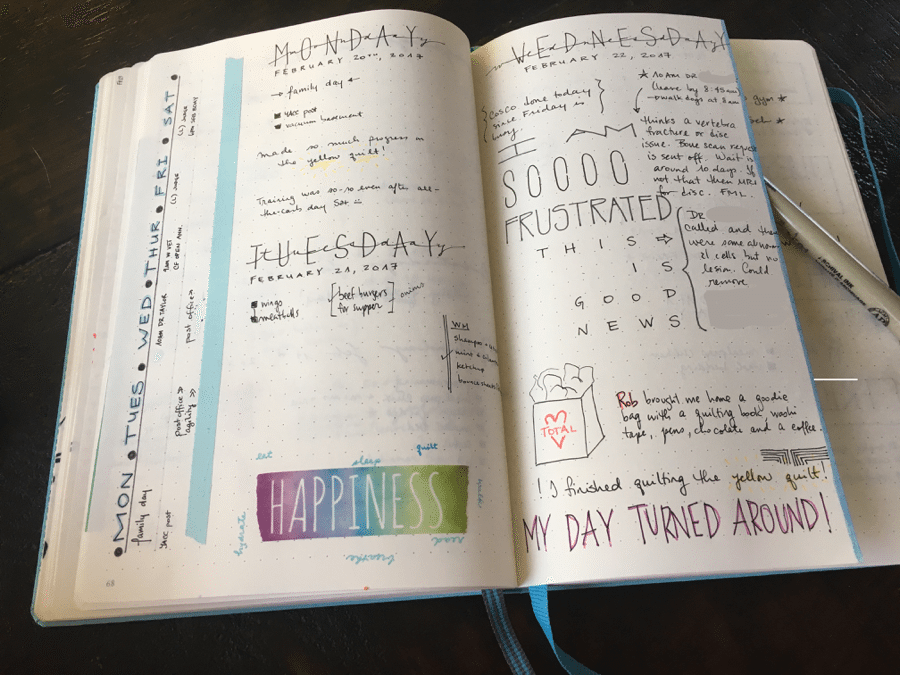 MON • TUES • WED • THUR • FRI • SAT •
family day
YACC post
post office »
agility »
10AM DR TAYLOR
post office »
68
MONDAY
FEBRUARY 20TH, 2017
→ family day ←
YACC post
vacuum basement
made so much progress on
the yellow quilt!
Training was so-so even after all-
the-carbs day Sat
TUESDAY
FEBRUARY 21, 2017
wings
meatballs
beef burgers
for supper
onions
WM
shampoo +
mint +
ketchup
bounce sheets
eat
sleep
quilt
HAPPINESS
hydrate
breathe
read
WEDNESDAY
FEBRUARY 22, 2017
Cosco done today
since Friday is
busy.
* 10 AM DR
(leave by 8:45am)
→ walk dogs at 8am
thinks a vertebra
fracture or disc
issue. Bone scan
is sent off. Wait
around 10 days. If
not that then MRI
for disc. FML.
I
SOOOO
FRUSTRATED
THIS
IS
GOOD
NEWS
DR
called and
were some
cells but no
lesion. Could
remove
TOTAL
Rob brought me home a goodie
bag with a quilting book, washi
tape, pens, chocolate and a coffee
! I finished quilting the yellow quilt!
MY DAY TURNED AROUND!
gym *